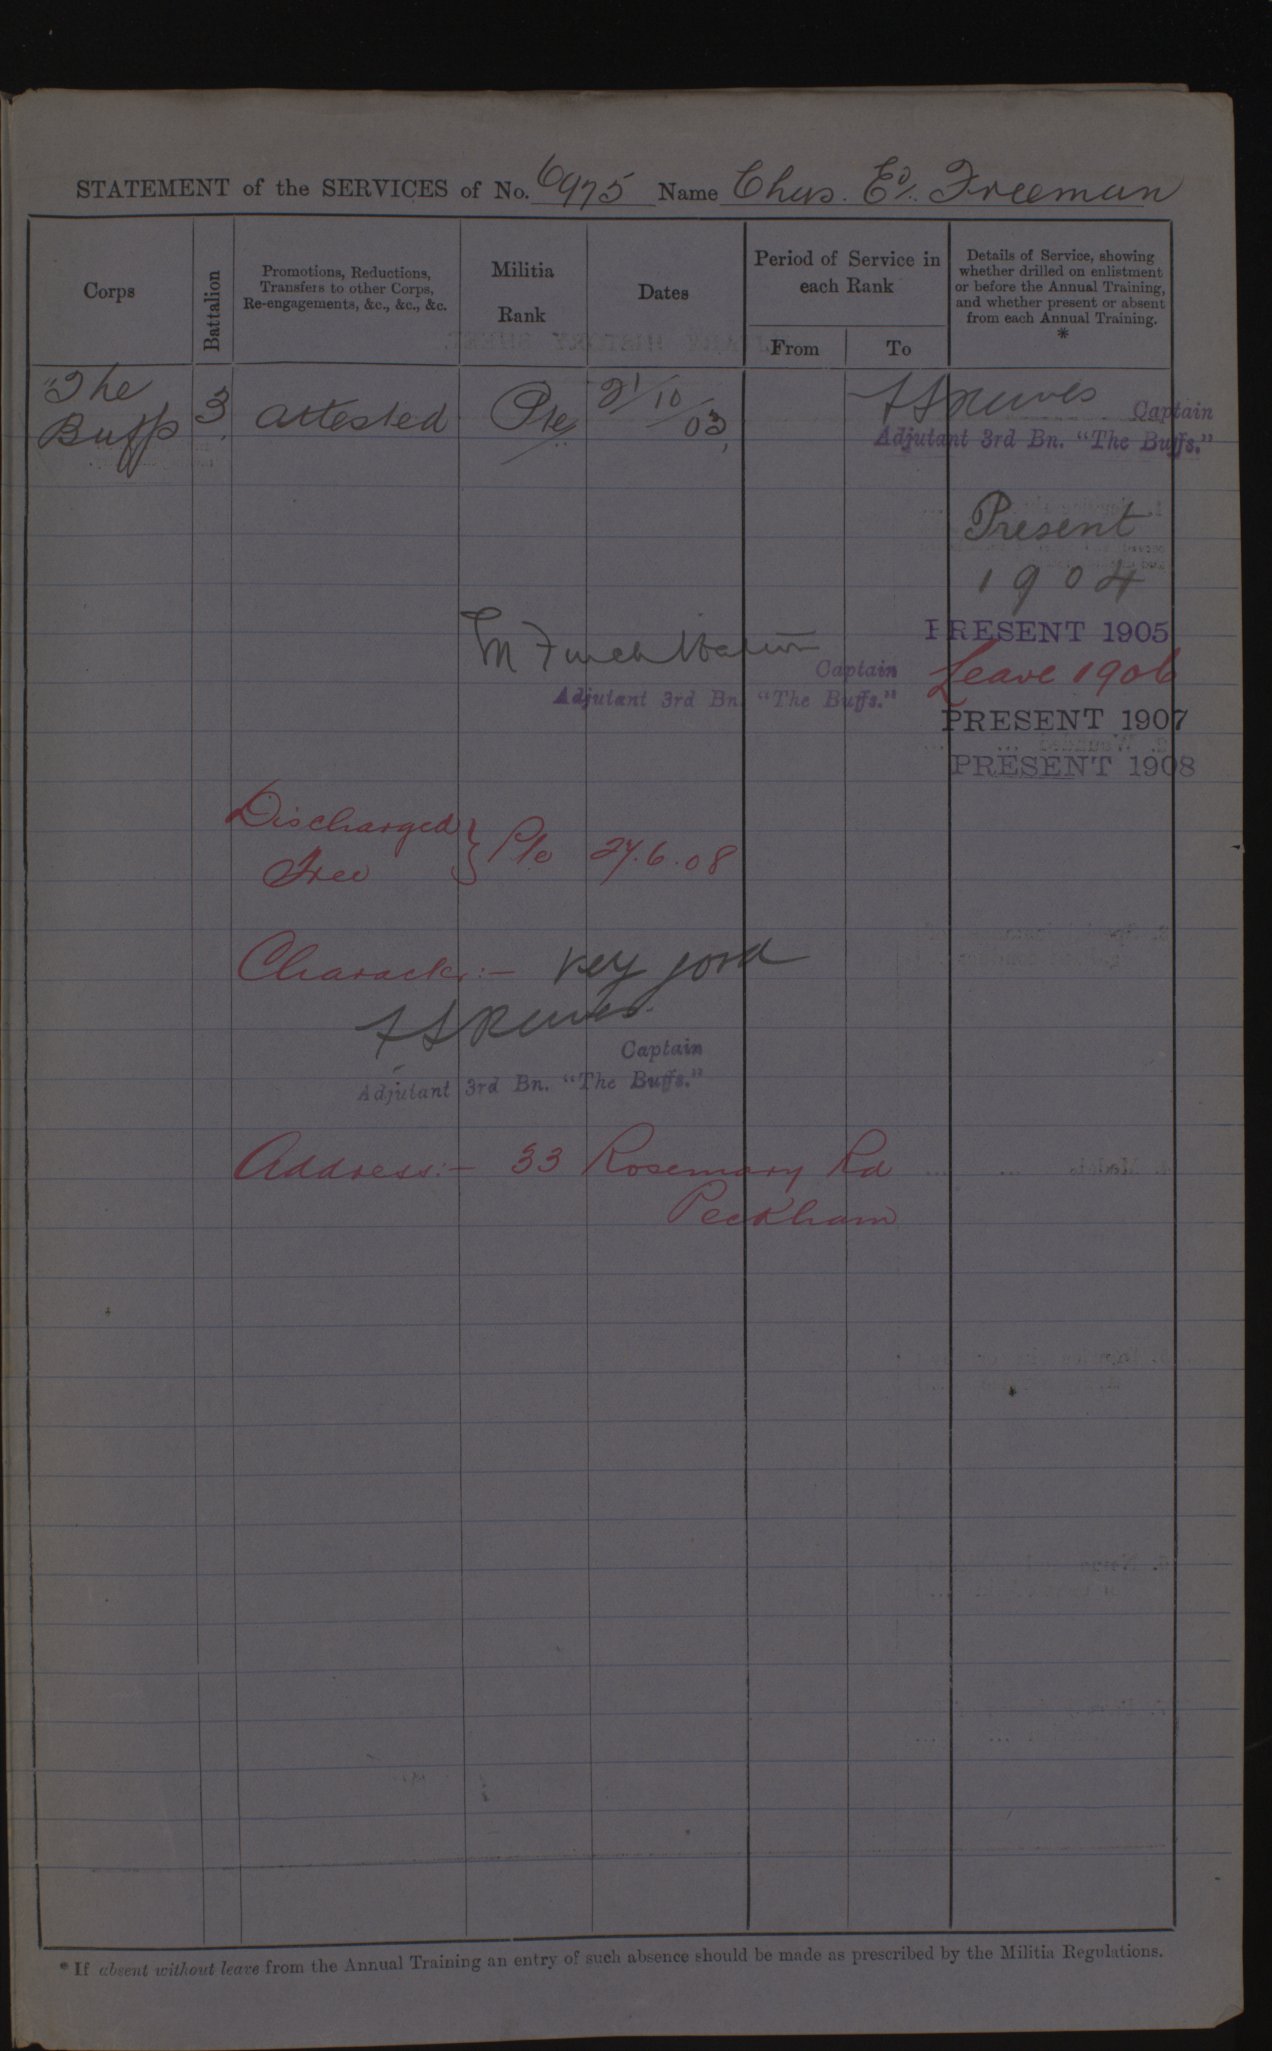 STATEMENT of the SERVICES of No. 6975 Name Chas. Ed. Freeman
Corps
Battalion
Promotions, Reductions,
Transfers to other Corps,
Re-engagements, &c., &c., &c.
Militia
Rank
Dates
Period of Service in
each Rank
From
To
Details of Service, showing
whether drilled on enlistment
or before the Annual Training,
and whether present or absent
from each Annual Training.
*
"The
Buffs
3
attested
Pte
21/10/03
Captain
Adjutant 3rd Bn. "The Buffs."
Present
1904
PRESENT 1905
Leave 1906
Captain
Adjutant 3rd Bn. "The Buffs."
PRESENT 1907
PRESENT 1908
Discharged
Free
} Pte 27.6.08
Character :- very good
Captain
Adjutant 3rd Bn. "The Buffs."
Address :- 33 Rosemary Rd
Peckham
* If absent without leave from the Annual Training an entry of such absence should be made as prescribed by the Militia Regulations.